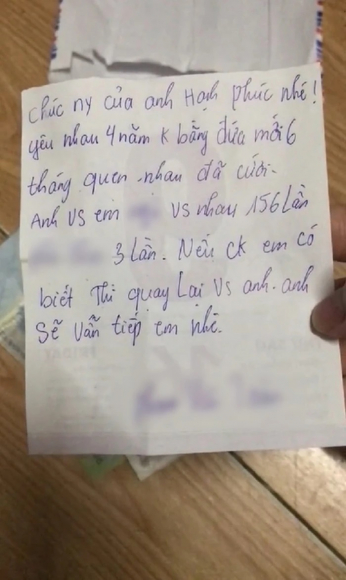 chúc ny của anh Hạnh phúc nhé!
yêu nhau 4 năm k bằng đứa mới 6
tháng quen nhau đã cưới.
Anh vs em vs nhau 156 Lần
3 Lần. Nếu ck em có
biết Thì quay Lại vs anh. anh
sẽ vẫn tiếp em nhé.